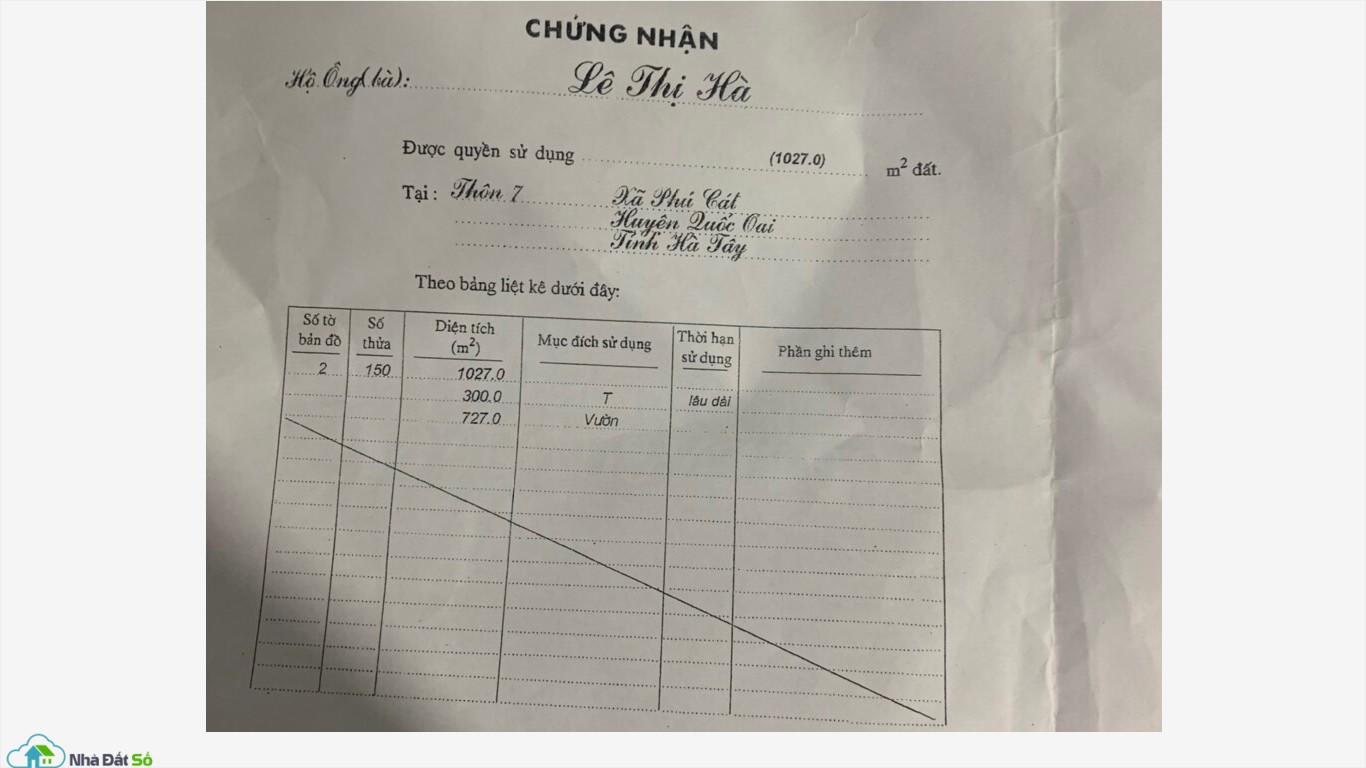 CHỨNG NHẬN
Hộ Ông(bà): Lê Thị Hà
Được quyền sử dụng (1027.0) m² đất.
Tại : Thôn 7 Xã Phú Cát
Huyện Quốc Oai
Tỉnh Hà Tây
Theo bảng liệt kê dưới đây:
Số tờ bản đồ Số thửa Diện tích (m²) Mục đích sử dụng Thời hạn sử dụng Phần ghi thêm
2 150 1027.0
300.0 T lâu dài
727.0 Vườn
Nhà Đất Số